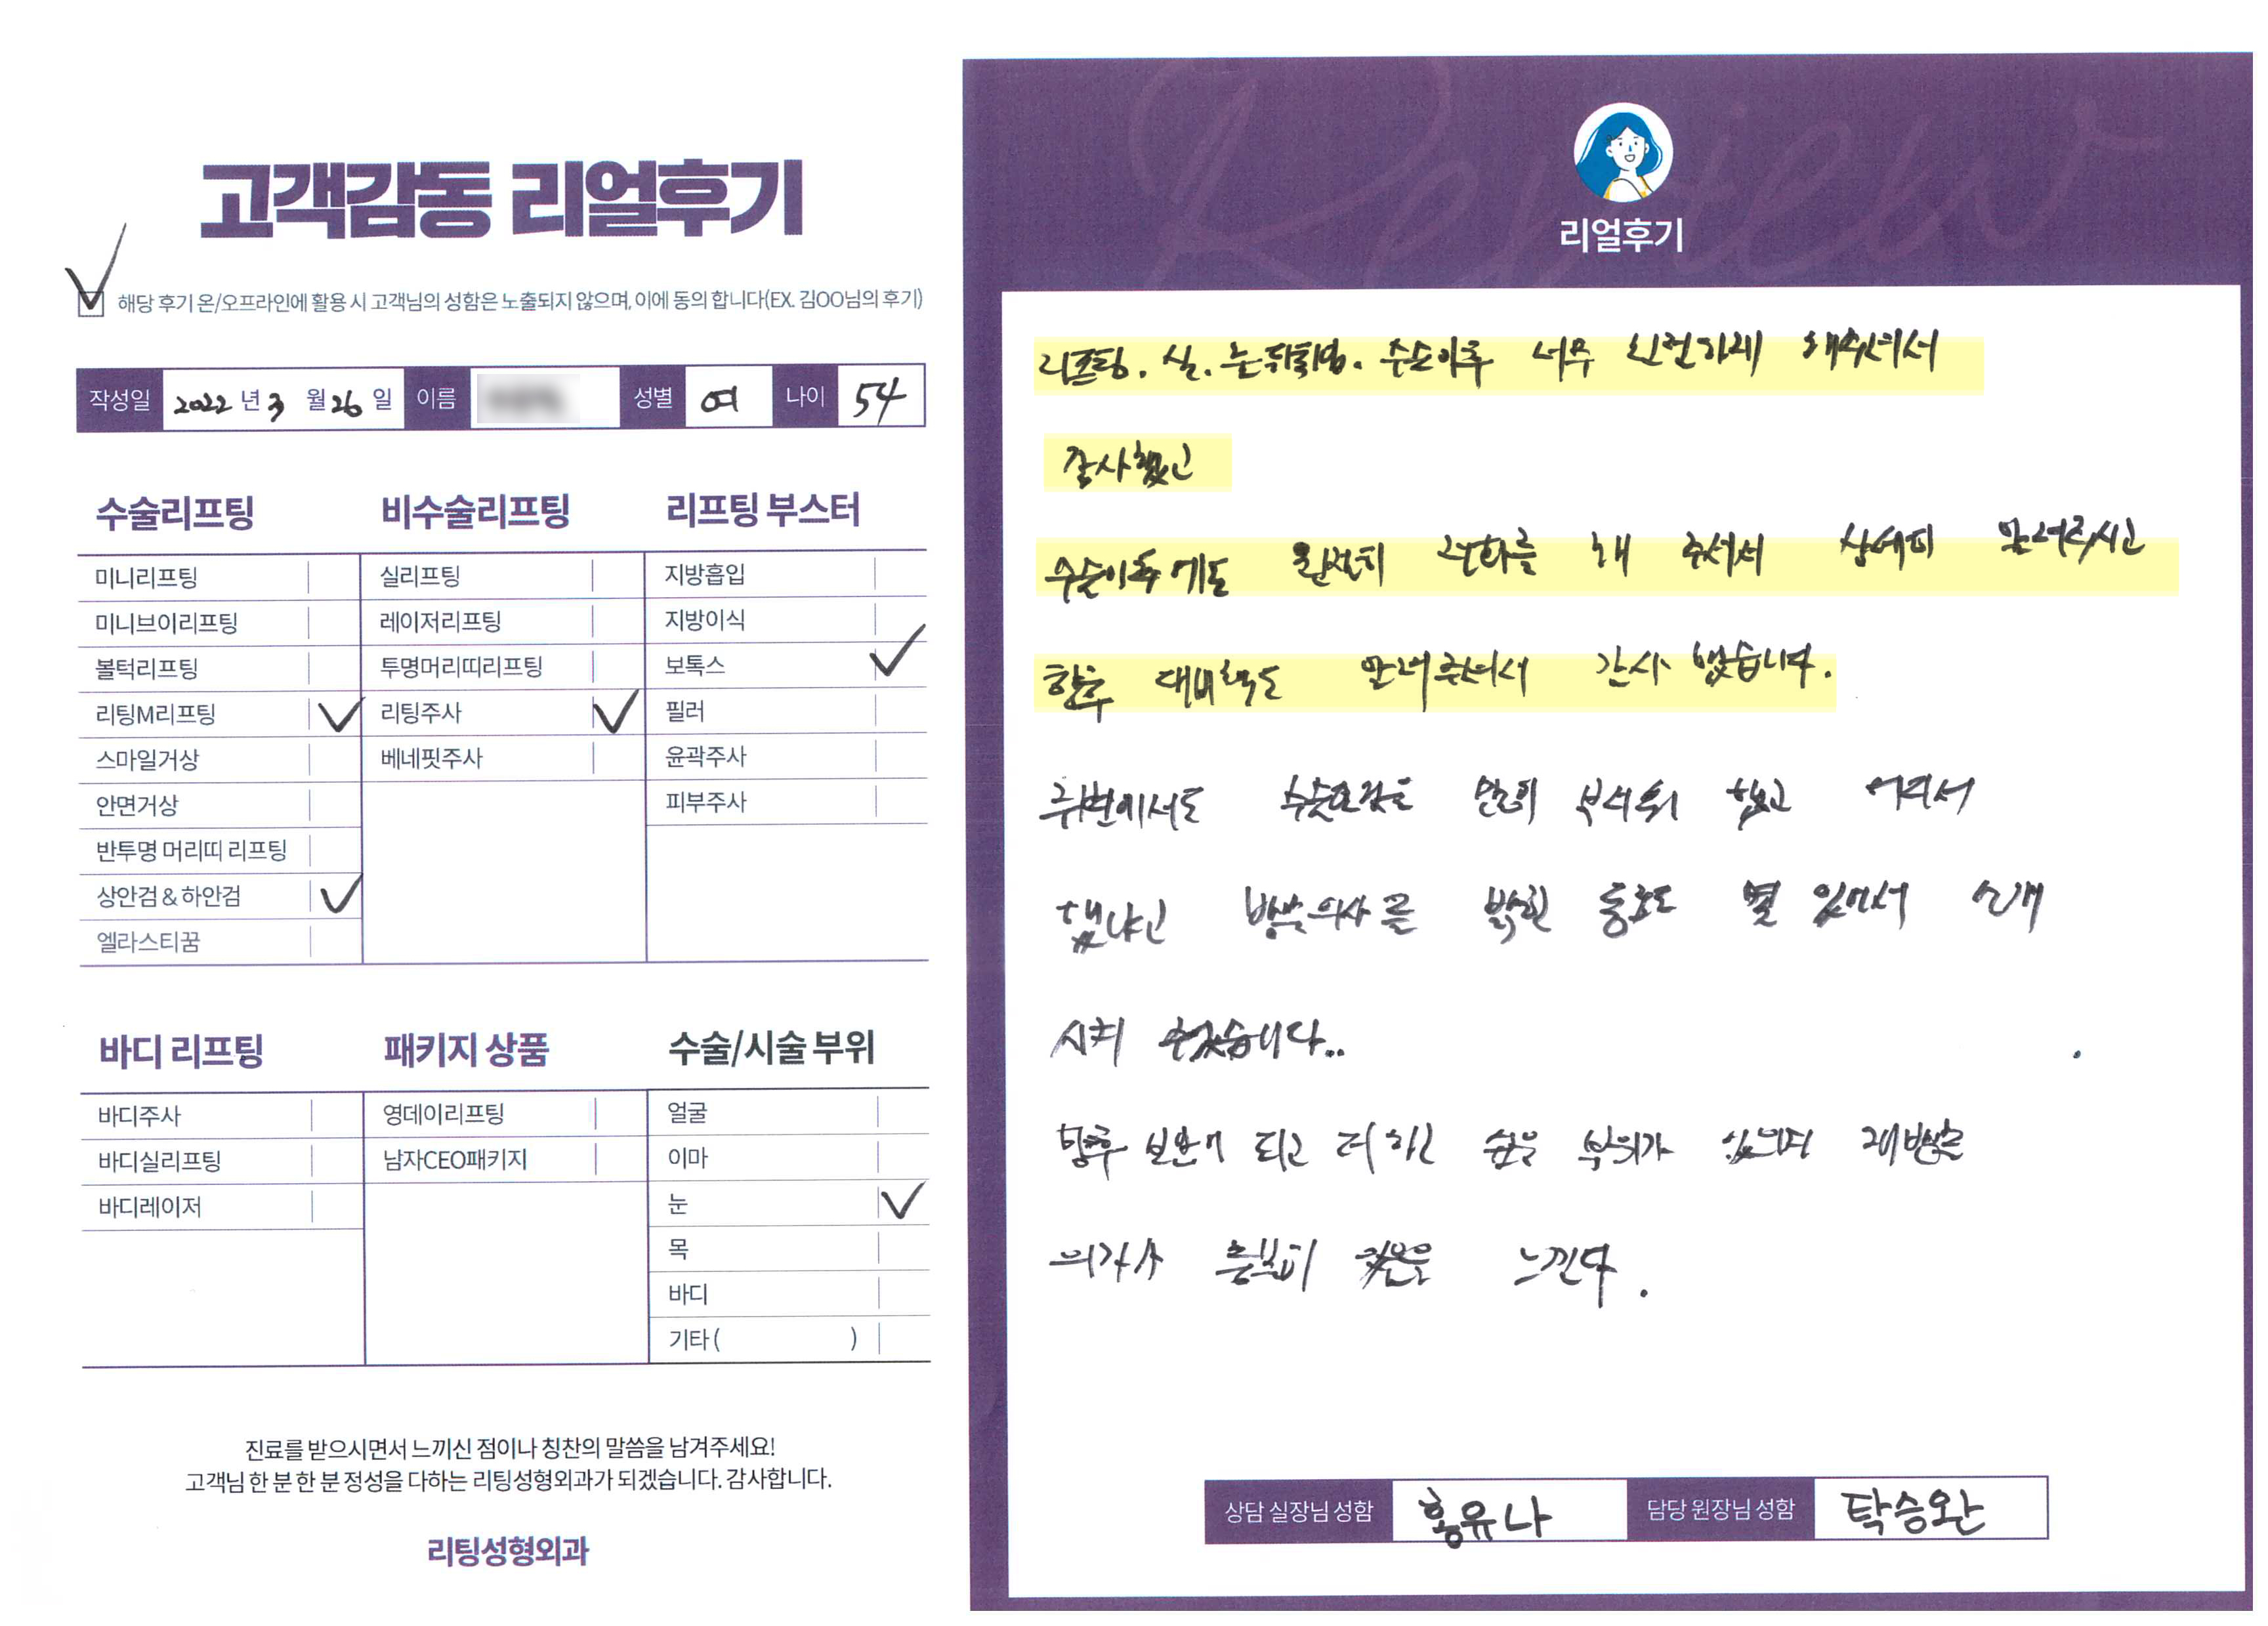 고객감동 리얼후기
해당 후기 온/오프라인에 활용 시 고객님의 성함은 노출되지 않으며, 이에 동의 합니다(EX. 김OO님의 후기)
작성일 2022 년 3 월 26 일 이름 성별 여 나이 54
수술리프팅
미니리프팅
미니브이리프팅
볼턱리프팅
리팅M리프팅
스마일거상
안면거상
반투명 머리띠 리프팅
상안검 & 하안검
엘라스티꿈
비수술리프팅
실리프팅
레이저리프팅
투명머리띠리프팅
리팅주사
베네핏주사
리프팅 부스터
지방흡입
지방이식
보톡스
필러
윤곽주사
피부주사
바디 리프팅
바디주사
바디실리프팅
바디레이저
패키지 상품
영데이리프팅
남자CEO패키지
수술/시술 부위
얼굴
이마
눈
목
바디
기타 ( )
진료를 받으시면서 느끼신 점이나 칭찬의 말씀을 남겨주세요!
고객님 한 분 한 분 정성을 다하는 리팅성형외과가 되겠습니다. 감사합니다.
리팅성형외과
Review
리얼후기
리프팅. 실. 수술이후 너무 친절하게 해주셔서
감사했고
수술이후에도 전화를 해 주셔서 상세히 알려주시고
향후 대비책도 알려주셔서 감사했습니다.
주변에서도 했고 어디서
했냐고 방문의사를 밝힌 몇 있어서 소개
시켜 주었습니다..
향후 되고 더 하고 싶은 부위가 있으며 재방문
의사가 충분히 느낀다.
상담 실장님 성함 홍유나 담당 원장님 성함 탁승완